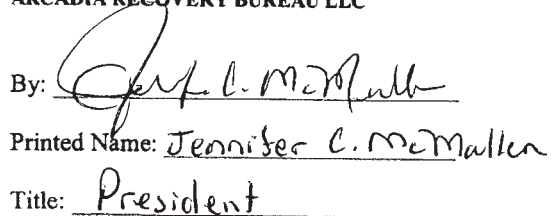 ARCADIA RECOVERY BUREAU LLC
By: Jenf. C. McMullen
Printed Name: Jennifer C. McMullen
Title: President